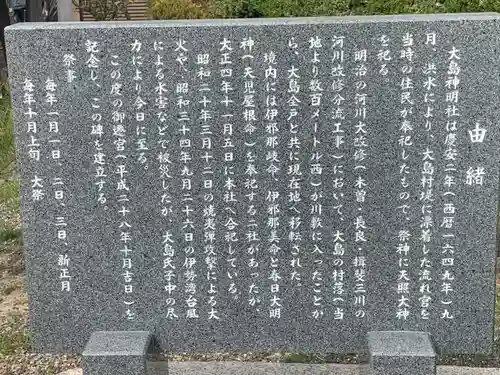 由緒
大島神明社は慶安二年（西暦一六四九年）九
月、洪水により、大島村堤に漂着した流れ宮を
当時の住民が奉祀したもので、祭神に天照大神
を祀る
明治の河川大改修（木曽・長良・揖斐三川の
河川改修分流工事）において、大島の村落（当
地より数百メートル西）が川敷に入ったことか
ら、大島全戸と共に現在地へ移転された。
境内には伊邪那歧命、伊邪那美命と春日大明
神（天児屋根命）を奉祀する二社があったが、
大正四年十一月五日に本社へ合祀している。
昭和二十年三月十二日の焼夷弾攻撃による大
火や、昭和三十四年九月二十六日の伊勢湾台風
による水害などで被災したが、大島氏子中の尽
力により今日に至る。
この度の御遷宮（平成二十八年十月吉日）を
記念し、この碑を建立する。
祭事
毎年一月一日　二日、三日　新正月
毎年十月上旬　大祭